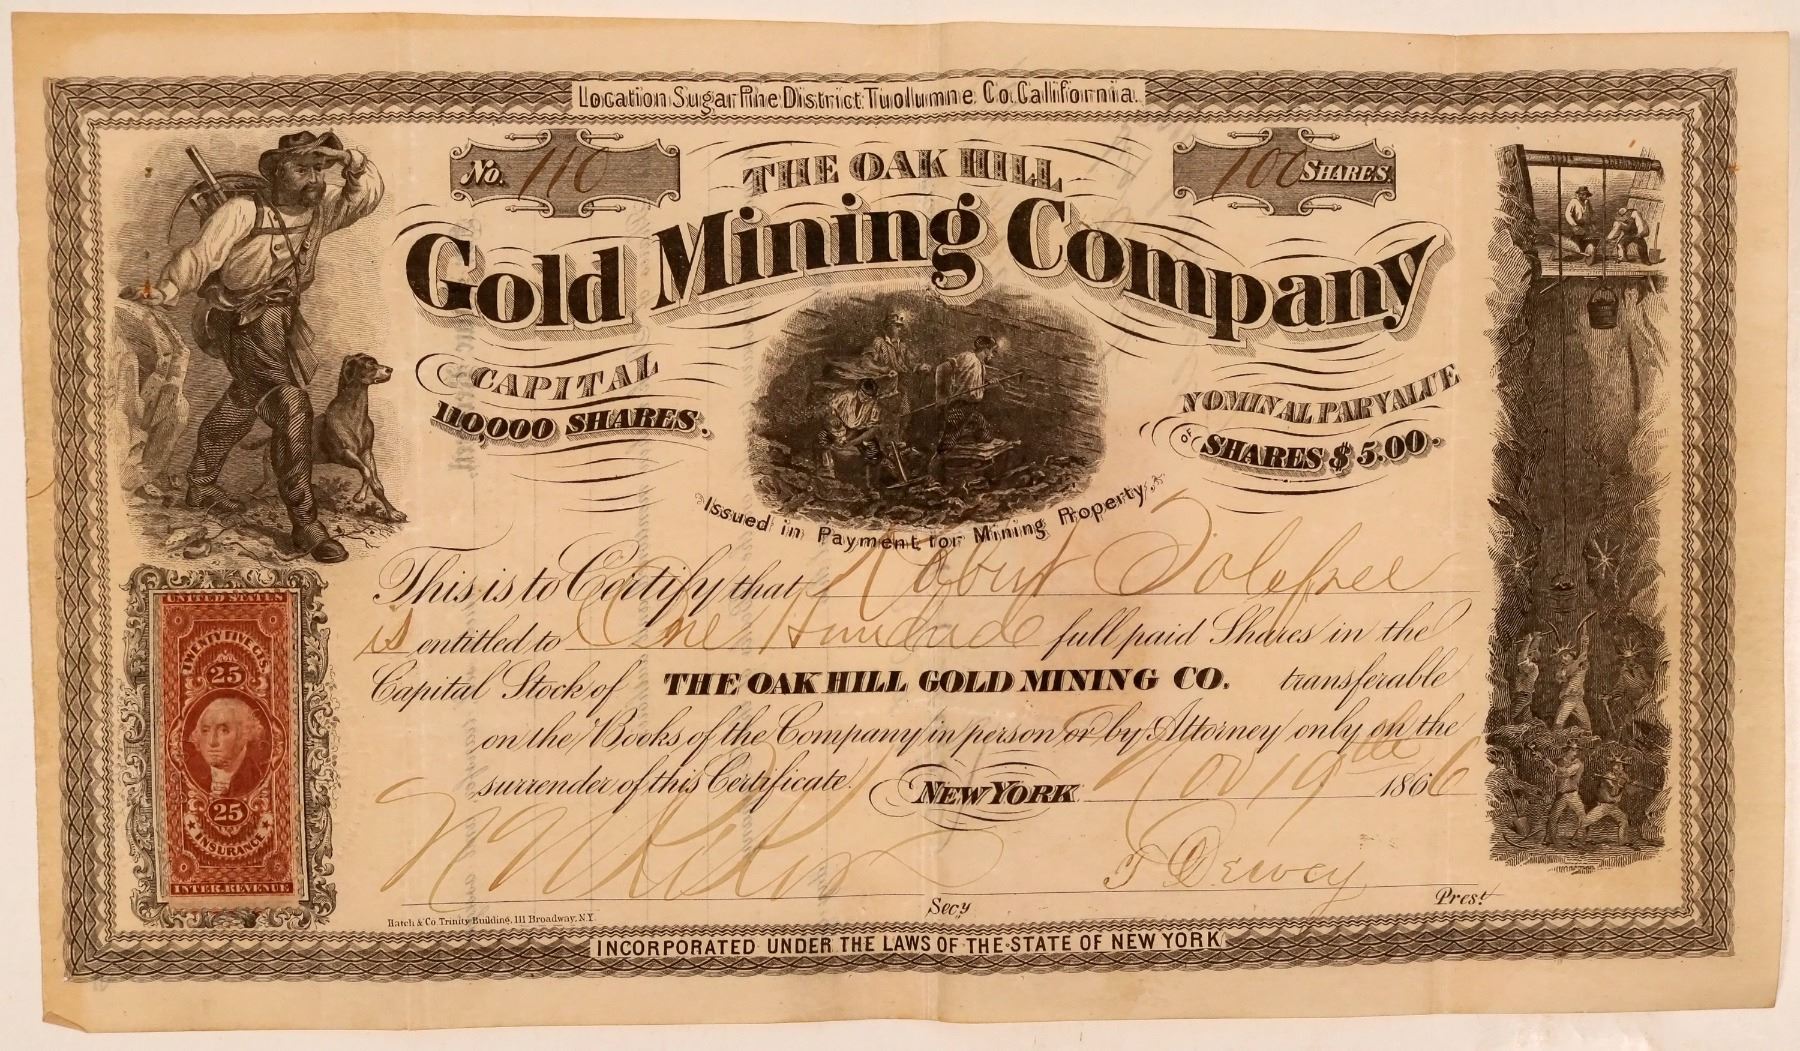 Location Sugar Pine District Tuolumne Co. California.
No. 110
100 SHARES
THE OAK HILL
Gold Mining Company
CAPITAL
110,000 SHARES.
NOMINAL PAR VALUE
OF SHARES $5.00.
Issued in Payment for Mining Property.
This is to Certify that Robert Tolefree
is entitled to One Hundred full paid Shares in the
Capital Stock of THE OAK HILL GOLD MINING CO. transferable
on the Books of the Company in person or by Attorney only on the
surrender of this Certificate. NEW YORK Nov 19th 1866
T Dewey
Secy
Prest
Hatch & Co. Trinity Building, 111 Broadway, N.Y.
INCORPORATED UNDER THE LAWS OF THE STATE OF NEW YORK
UNITED STATES
TWENTY FIVE CTS.
25
25
INSURANCE
INTER. REVENUE